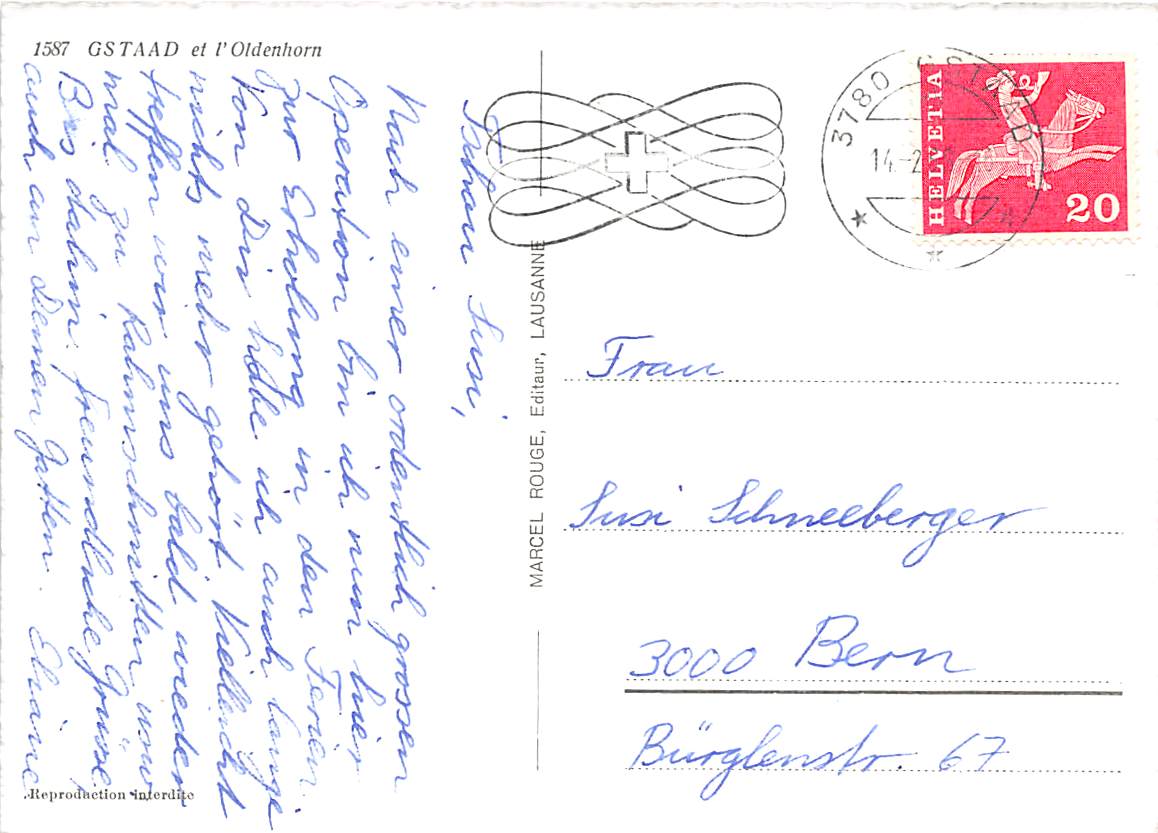 1587 GSTAAD et l'Oldenhorn
Tschau Susi,
Nach einer ordentlich grossen
Operation bin ich nun hier
zur Erholung in den Ferien.
Von Dir habe ich auch lange
nichts mehr gehört. Vielleicht
treffen wir uns bald wieder
mal zu Rahmschnitten usw
Bis dahin: freundliche Grüsse
auch an Deinen Gatten. Eliane
Reproduction interdite
MARCEL ROUGE, Editaur, LAUSANNE
3780 GSTAAD
14.-2
HELVETIA
20
Frau
Susi Schneeberger
3000 Bern
Bürglenstr. 67